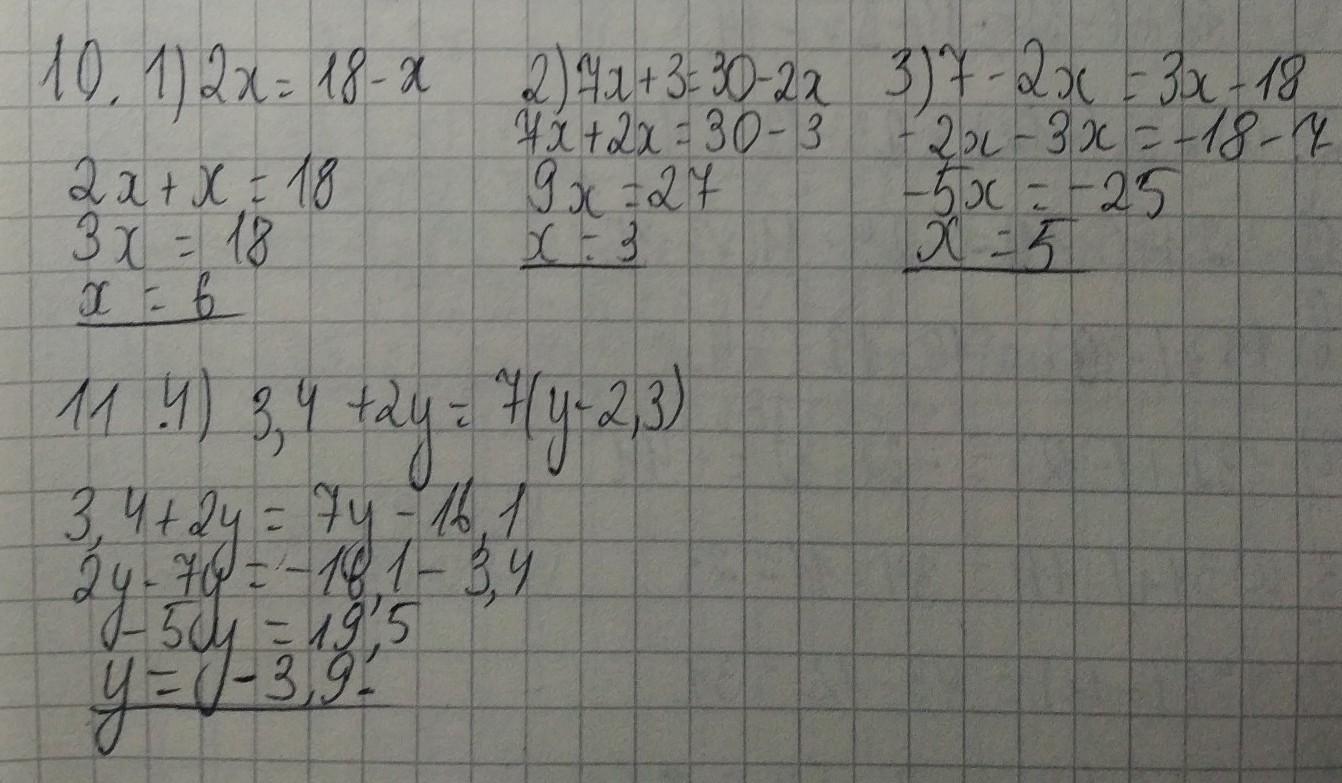 10. 1) 2x = 18 - x
2x + x = 18
3x = 18
x = 6
2) 7x + 3 = 30 - 2x
7x + 2x = 30 - 3
9x = 27
x = 3
3) 7 - 2x = 3x - 18
-2x - 3x = -18 - 7
-5x = -25
x = 5
11. 4) 3,4 + 2y = 7(y - 2,3)
3,4 + 2y = 7y - 16,1
2y - 7y = -16,1 - 3,4
-5y = 19,5
y = -3,9